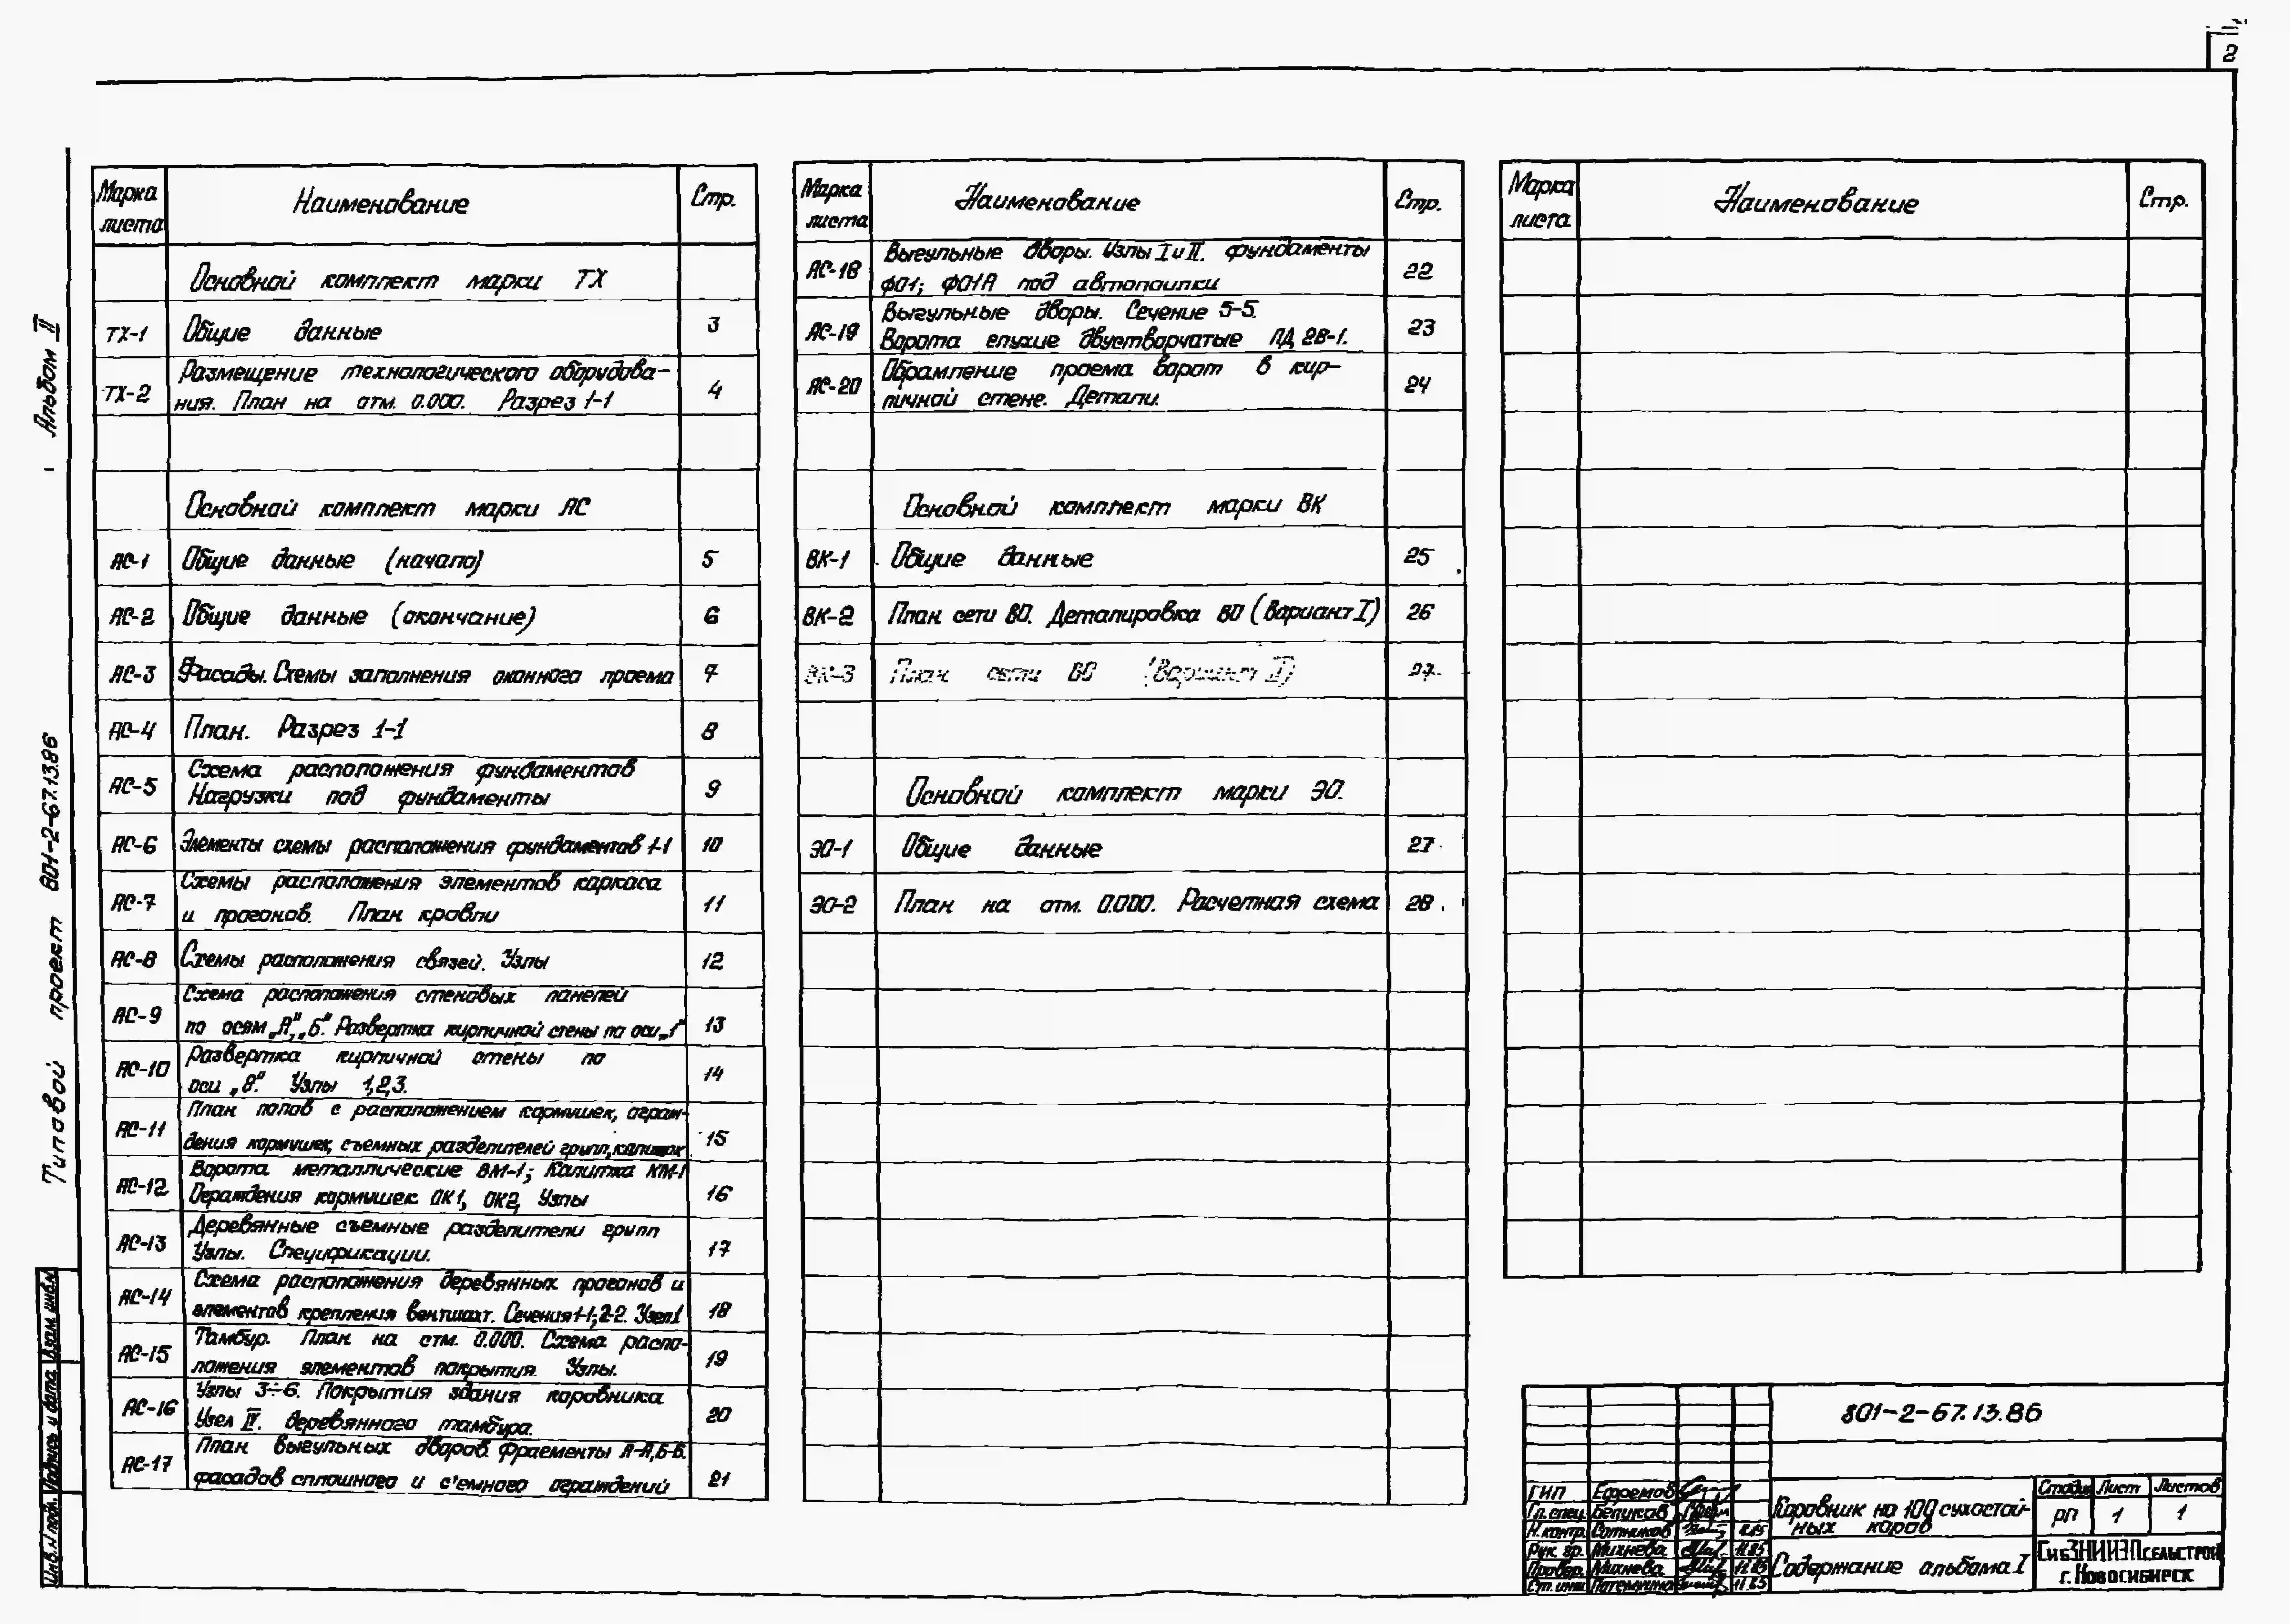 2
Альбом II
Типовой проект 801-2-67.13.86
Инв.N подл. Подпись и дата Взам. инв.N
Марка листа Наименование Стр.
Основной комплект марки ТХ
ТХ-1 Общие данные 3
ТХ-2 Размещение технологического оборудова-
ния. План на отм. 0.000. Разрез 1-1 4
Основной комплект марки АС
АС-1 Общие данные (начало) 5
АС-2 Общие данные (окончание) 6
АС-3 Фасады. Схемы заполнения оконного проема 7
АС-4 План. Разрез 1-1 8
АС-5 Схема расположения фундаментов
Нагрузки под фундаменты 9
АС-6 Элементы схемы расположения фундаментов 1-1 10
АС-7 Схемы расположения элементов каркаса
и прогонов. План кровли 11
АС-8 Схемы расположения связей. Узлы 12
АС-9 Схема расположения стеновых панелей
по осям „А",„Б". Развертка кирпичной стены по оси „1" 13
АС-10 Развертка кирпичной стены по
оси „8". Узлы 1,2,3. 14
АС-11 План полов с расположением кормушек, ограж-
дения кормушек, съемных разделителей групп, калиток 15
АС-12 Ворота металлические ВМ-1; Калитка КМ-1
Ограждения кормушек ОК1, ОК2, Узлы 16
АС-13 Деревянные съемные разделители групп
Узлы. Спецификации. 17
АС-14 Схема расположения деревянных прогонов и
элементов крепления вентшахт. Сечения 1-1; 2-2. Узел 1 18
АС-15 Тамбур. План на отм. 0.000. Схема распо-
ложения элементов покрытия. Узлы. 19
АС-16 Узлы 3÷6. Покрытия здания коровника
Узел IV. деревянного тамбура. 20
АС-17 План выгульных дворов. Фрагменты А-А,Б-Б.
фасадов сплошного и с'емного ограждений 21
Марка листа Наименование Стр.
АС-18 Выгульные дворы. Узлы I и II. фундаменты
ФО1; ФО1А под автопоилки 22
АС-19 Выгульные дворы. Сечение 5-5.
Ворота глухие двустворчатые ПД 2В-1. 23
АС-20 Обрамление проема ворот в кир-
пичной стене. Детали. 24
Основной комплект марки ВК
ВК-1 Общие данные 25
ВК-2 План сети ВО. Деталировка ВО (Вариант I) 26
ВК-3 План сети ВО (Вариант II) 27
Основной комплект марки ЭО.
ЭО-1 Общие данные 27
ЭО-2 План на отм. 0.000. Расчетная схема 28
Марка листа Наименование Стр.
801-2-67.13.86
ГИП Ефремов
Гл.спец. Беликов
Н.контр. Сотников 11.85
Рук. гр. Михнева 11.85
Провер. Михнева 11.85
Ст. инж. Потемкина 11.85
Коровник на 100 сухостой-
ных коров
Стадия Лист Листов
РП 1 1
Содержание альбома I
СибЗНИИЭПсельстрой
г. Новосибирск